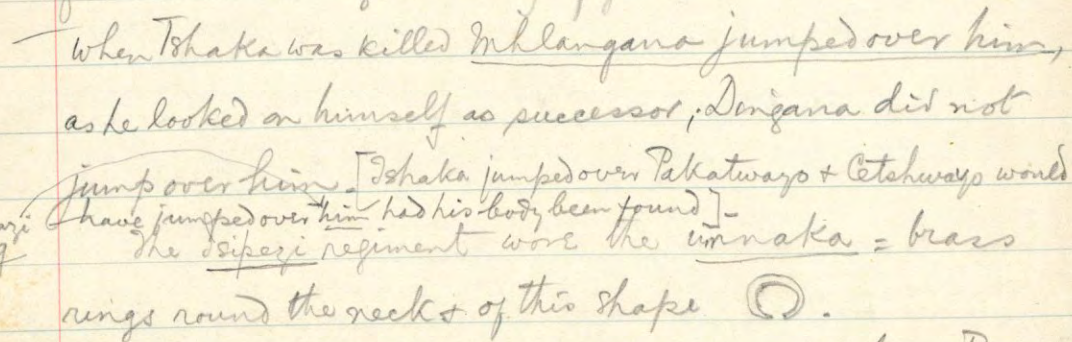 when Tshaka was killed Mhlangana jumped over him,
as he looked on himself as successor; Dingana did not
jump over him. [Tshaka jumped over Pakatwayo & Cetshwayo would
have jumped over him had his body been found].
The Isipezi regiment wore the umnaka = brass
rings round the neck & of this shape